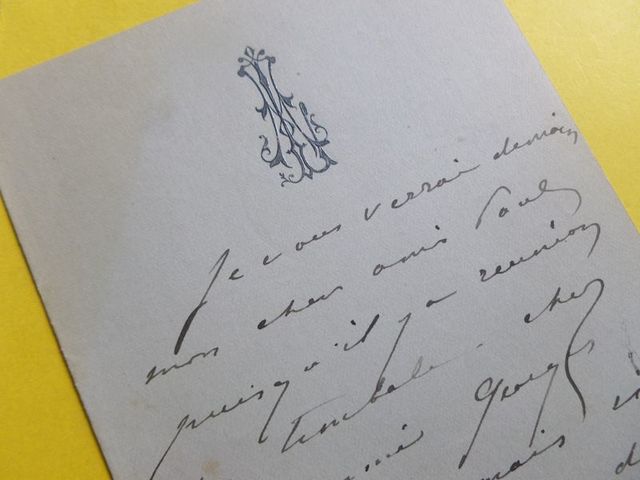 Je vous verrai demain
mon cher ami Paul
puisqu'il y a reunion
Timbale chez
ami Georges
mais